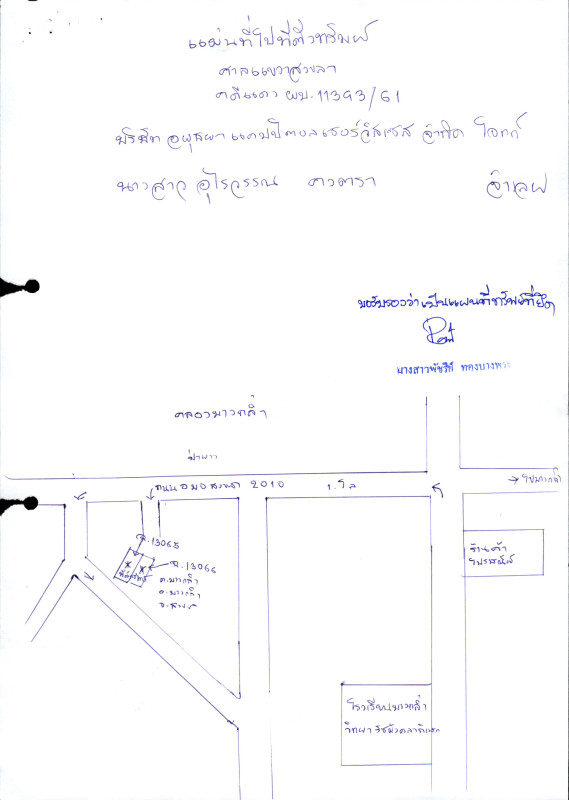 แผนที่ไปที่ตั้งทรัพย์
ศาลแขวงสงขลา
คดีแดง ผบ.11393/61
บริษัท อยุธยา แคปปิตอล เซอร์วิสเซส จำกัด โจทก์
นางสาว อุไรวรรณ จำเลย
ขอรับรองว่าเป็นแผนที่ทรัพย์ที่ยึด
นางสาวพัชรี ทองบางพระ
คลองบางกล่ำ
ถนน 2010 1.โล
ฉ.13065
ฉ.13066
ที่ตั้งทรัพย์
ต.บางกล่ำ
อ.บางกล่ำ
จ.สงขลา
ร้านค้า
โรงเรียนบางกล่ำ
วิทยา รัชมังคลาภิเษก